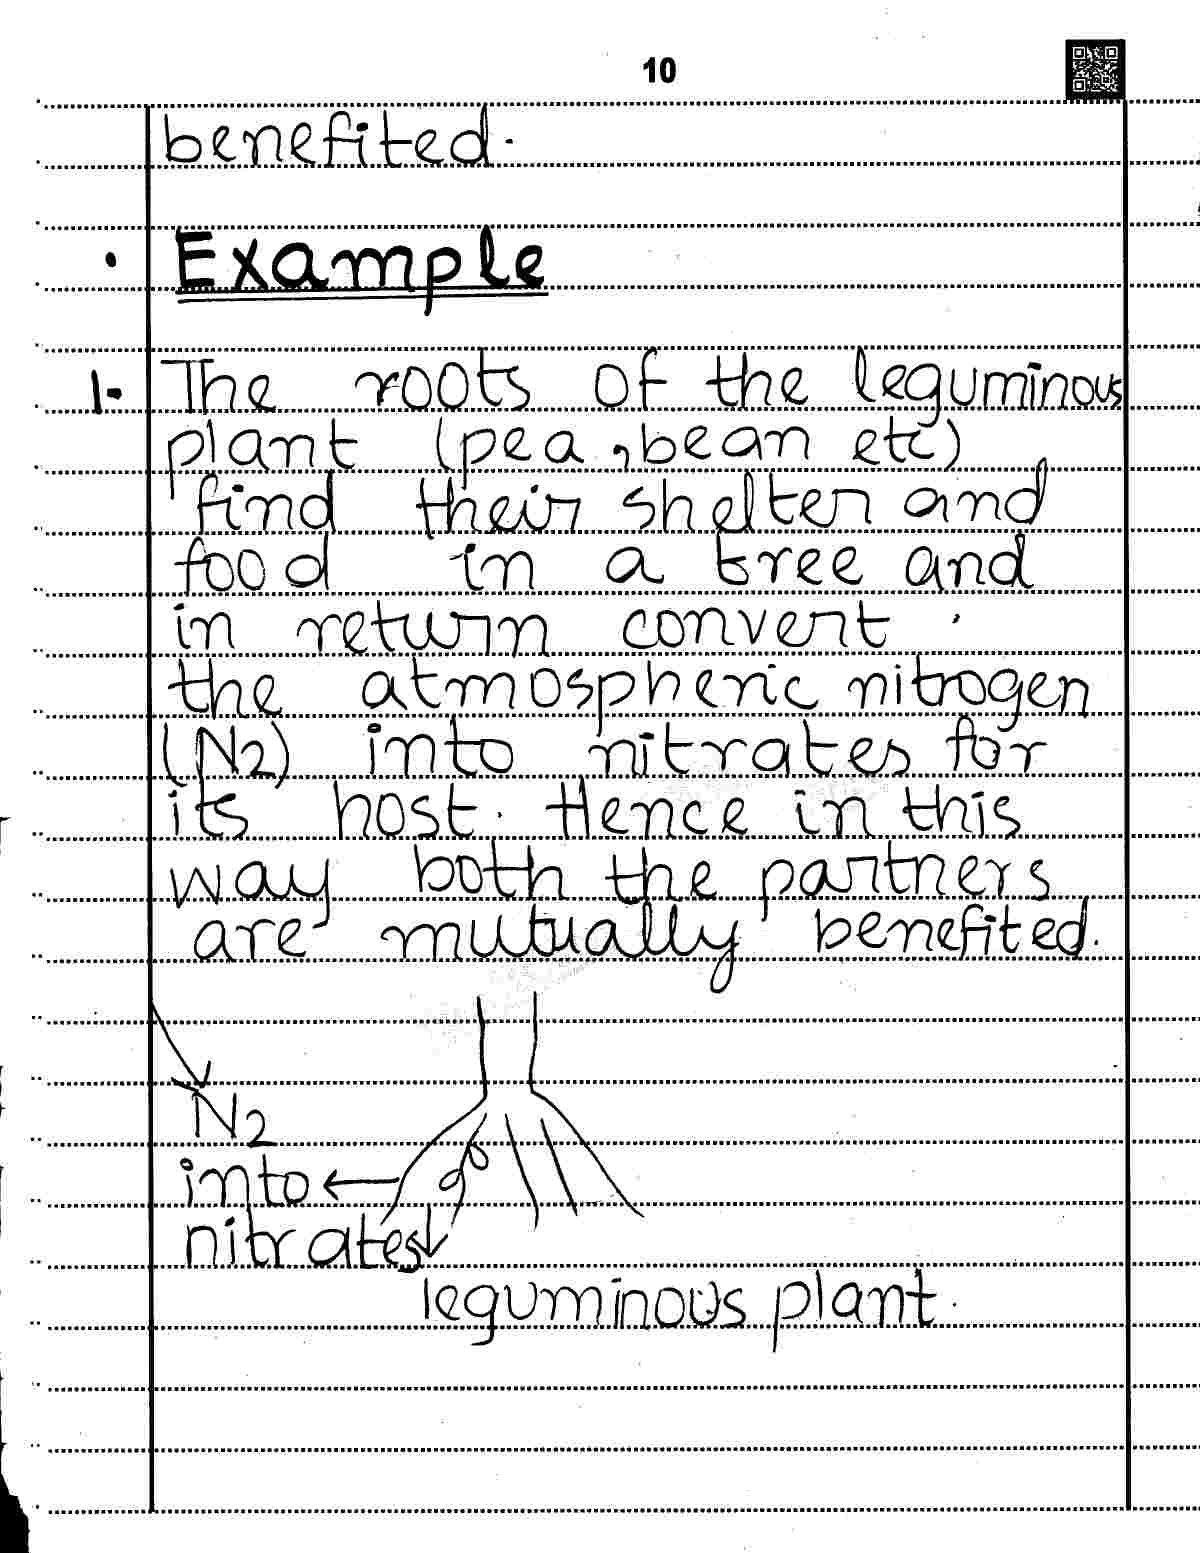 10
benefited.
• Example
1. The roots of the leguminous
plant (pea, bean etc)
find their shelter and
food in a tree and
in return convert
the atmospheric nitrogen
(N2) into nitrates for
its host. Hence in this
way both the partners
are mutually benefited.
N2
into
nitrates
leguminous plant.